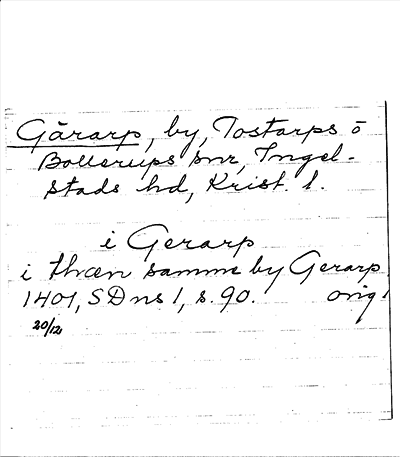 Gårarp, by, Tostarps ö
Bollerups snr, Ingel-
stads hd, Krist. l.
i Gerarp
i thæn samme by Gerarp
1401, SD ns 1, s. 90. orig.
20/12